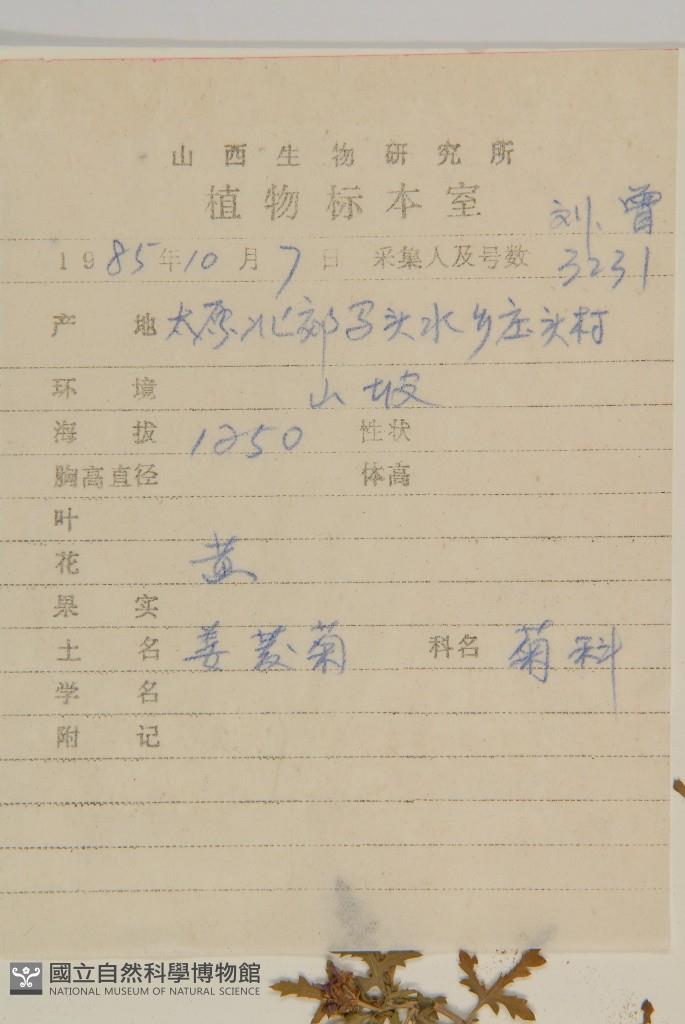 山西生物研究所
植物标本室
刘、曾
1985年10月7日 采集人及号数 3231
产地 太原北郊马头水乡庄头村
环境 山坡
海拔 1250 性状
胸高直径 体高
叶
花 黄
果实
土名 委菱菊 科名 菊科
学名
附记
國立自然科學博物館
NATIONAL MUSEUM OF NATURAL SCIENCE